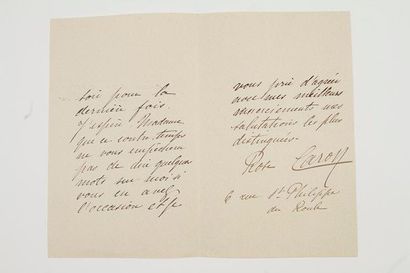 soir pour la
dernière fois.
J'espère Madame
que ce contre-temps
ne vous empêchera
pas de dire quelques
mots sur moi si
vous en avez
l'occasion et je
vous prie d'agréer
avec mes meilleurs
remerciements mes
salutations les plus
distinguées.
Rose Caron
6 rue St Philippe
du Roule